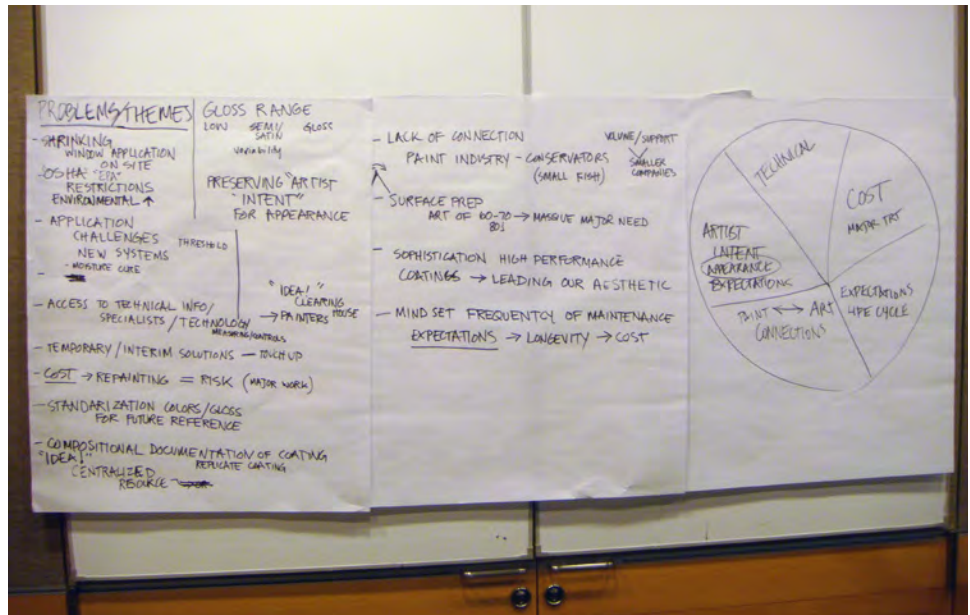 PROBLEMS/THEMES
- SHRINKING
WINDOW APPLICATION
ON SITE
- OSHA "EPA"
RESTRICTIONS
ENVIRONMENTAL ↑
- APPLICATION
CHALLENGES
NEW SYSTEMS
- MOISTURE CURE
-
- ACCESS TO TECHNICAL INFO/
SPECIALISTS/TECHNOLOGY
MEASURING/CONTROLS
- TEMPORARY/INTERIM SOLUTIONS - TOUCH UP
- COST → REPAINTING = RISK (MAJOR WORK)
- STANDARIZATION COLORS/GLOSS
FOR FUTURE REFERENCE
- COMPOSITIONAL DOCUMENTATION OF COATING
"IDEA!" REPLICATE COATING
CENTRALIZED
RESOURCE
GLOSS RANGE
LOW SEMI/ GLOSS
SATIN
variability
PRESERVING "ARTIST
"INTENT"
FOR APPEARANCE
THRESHOLD
"IDEA!"
CLEARING
→ PAINTERS HOUSE
- LACK OF CONNECTION
PAINT INDISTRY - CONSERVATORS
(SMALL FISH)
VOLUME/SUPPORT
SMALLER
COMPANIES
- SURFACE PREP
ART OF 60-70 → MASQUE MAJOR NEED
80s
- SOPHISTICATION HIGH PERFORMANCE
COATINGS → LEADING OUR AESTHETIC
- MIND SET FREQUENTCY OF MAINTENANCE
EXPECTATIONS → LONGEVITY → COST
TECHNICAL
COST
MAJOR TRT
ARTIST
INTENT
APPEARANCE
EXPECTATIONS
EXPECTATIONS
LIFE CYCLE
PAINT ↔ ART
CONNECTIONS